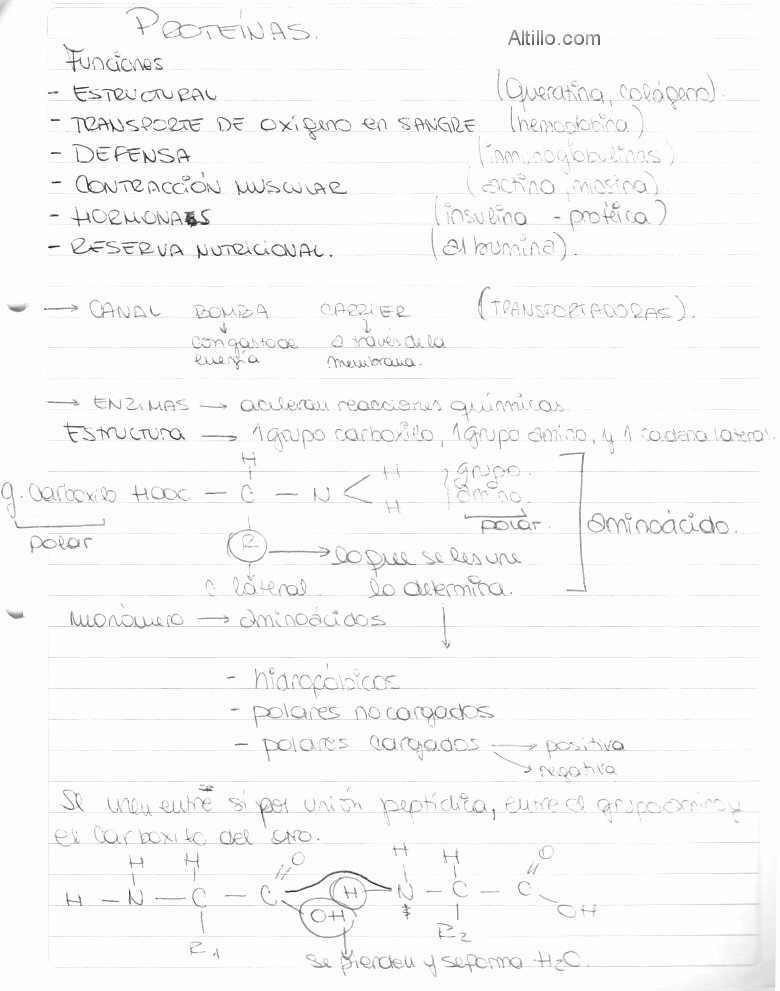 PROTEÍNAS.
Altillo.com
Funciones
- ESTRUCTURAL (Queratina, colágeno).
- TRANSPORTE DE OXÍGENO en SANGRE (hemoglobina)
- DEFENSA (inmunoglobulinas)
- CONTRACCIÓN MUSCULAR (actina, miosina)
- HORMONAS (insulina - protéica)
- RESERVA NUTRICIONAL. (albumina).
→ CANAL BOMBA CARRIER (TRANSPORTADORAS).
con gasto de a través de la
energía membrana.
→ ENZIMAS → aceleran reacciones químicas
ESTRUCTURA → 1 grupo carboxilo, 1 grupo amino, y 1 cadena lateral.
H H grupo
g. Carboxilo HOOC - C - N < amino. aminoácido.
H
polar polar.
R → lo que se les une
c lateral. lo determina.
monómero → aminoácidos
- hidrofóbicos
- polares no cargados
- polares cargados → positiva
→ negativa
Se unen entre si por unión peptídica, entre el grupo amino y
el carboxilo del otro.
H H O H H O
H - N - C - C H N - C - C
OH OH
R1 R2
se pierden y se forma H2O.